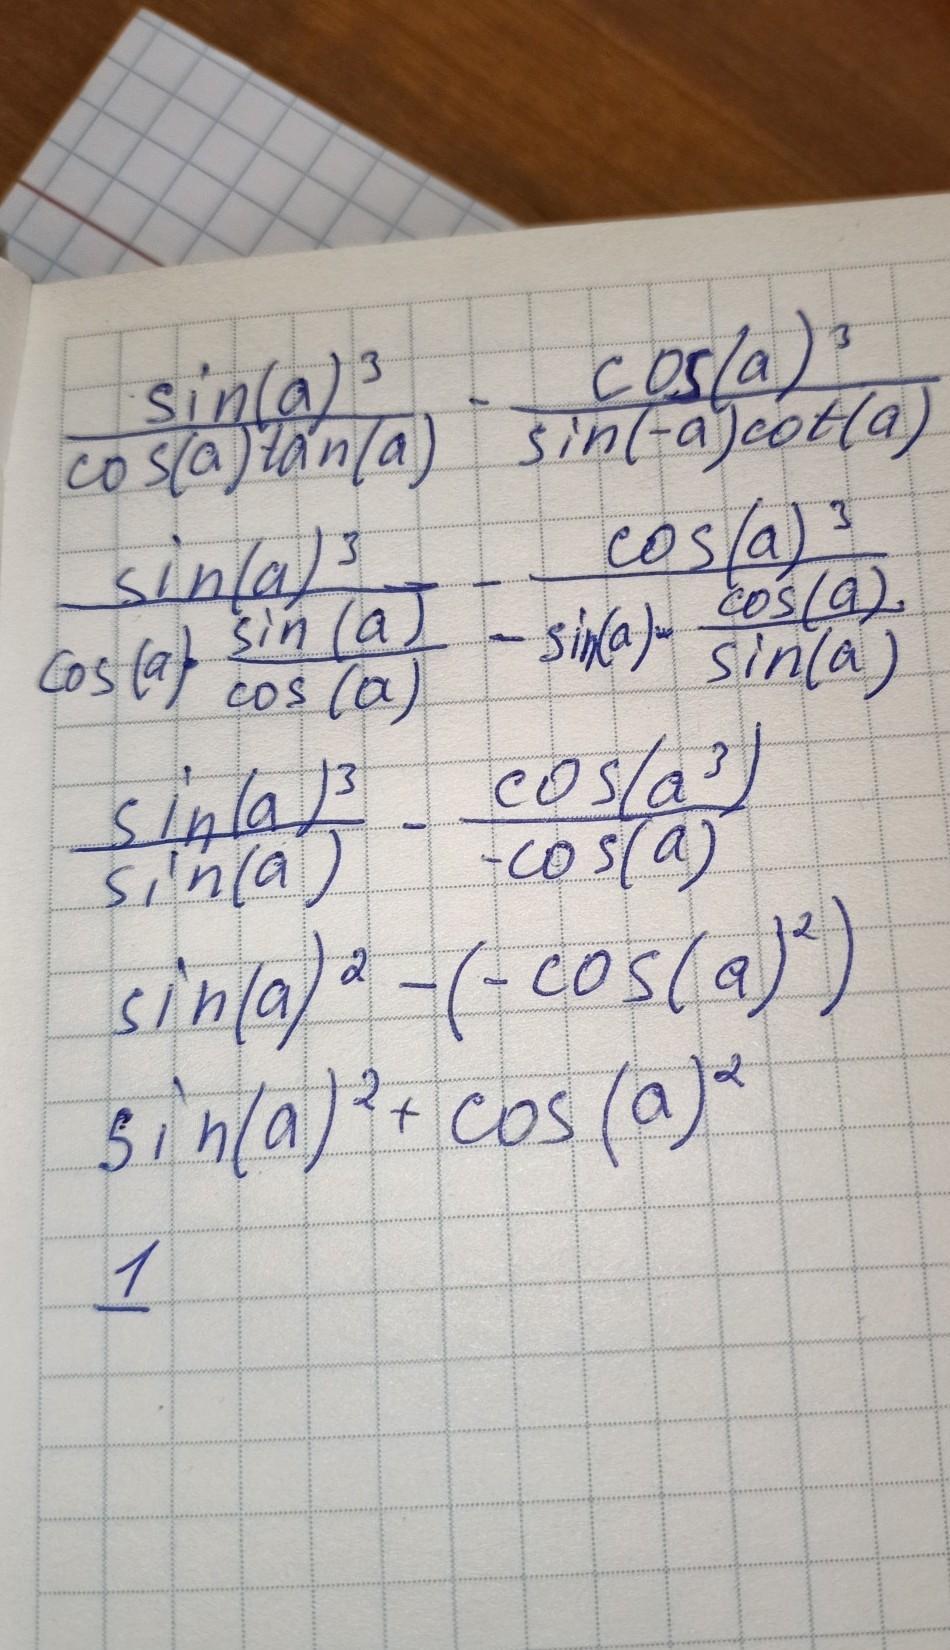 sin(a)³ / cos(a)tan(a) - cos(a)³ / sin(-a)cot(a)
sin(a)³ / cos(a)· sin(a)/cos(a) - cos(a)³ / -sin(a)· cos(a)/sin(a)
sin(a)³ / sin(a) - cos(a³) / -cos(a)
sin(a)² -(-cos(a)²)
sin(a)² + cos(a)²
1